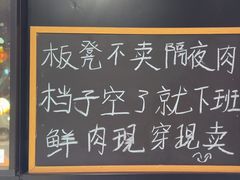 板凳不卖隔夜肉
档子空了就下班
鲜肉現穿現卖